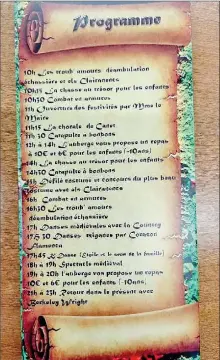 Programme
10h Les troubadours déambulation
échassiers et els Clairanencs
10h15 La chasse au trésor pour les enfants
10h30 Combat en armures
11h Ouverture des festivités par Mme le
Maire
11h15 La chorale de Canet
11h Catapulte à bonbons
12h à 14h L'auberge vous propose un repas
à 10€ et 6€ pour les enfants (-10ans)
14h La chasse au trésor pour les enfants
14h30 Catapulte à bonbons
Défilé costumé et concours du plus beau
costume avec els Clairanencs
16h Combat en armures
16h30 Les troubadours
déambulation échassière
17h Danses médiévales avec la Country
17h30 Danses tziganes par Corazon
Flamenco
17h45 K Danse
18h à 19h Spectacle médiéval
19h à 20h l'auberge vous propose un repas
10€ et 6€ pour les enfants (-10ans)
21h à 23h Retour dans le présent avec
Berkeley Wright